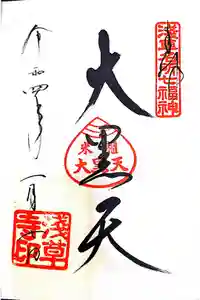 奉拝
浅草名所七福神
大黒天
米櫃
大黒天
令和四年一月
浅草寺印